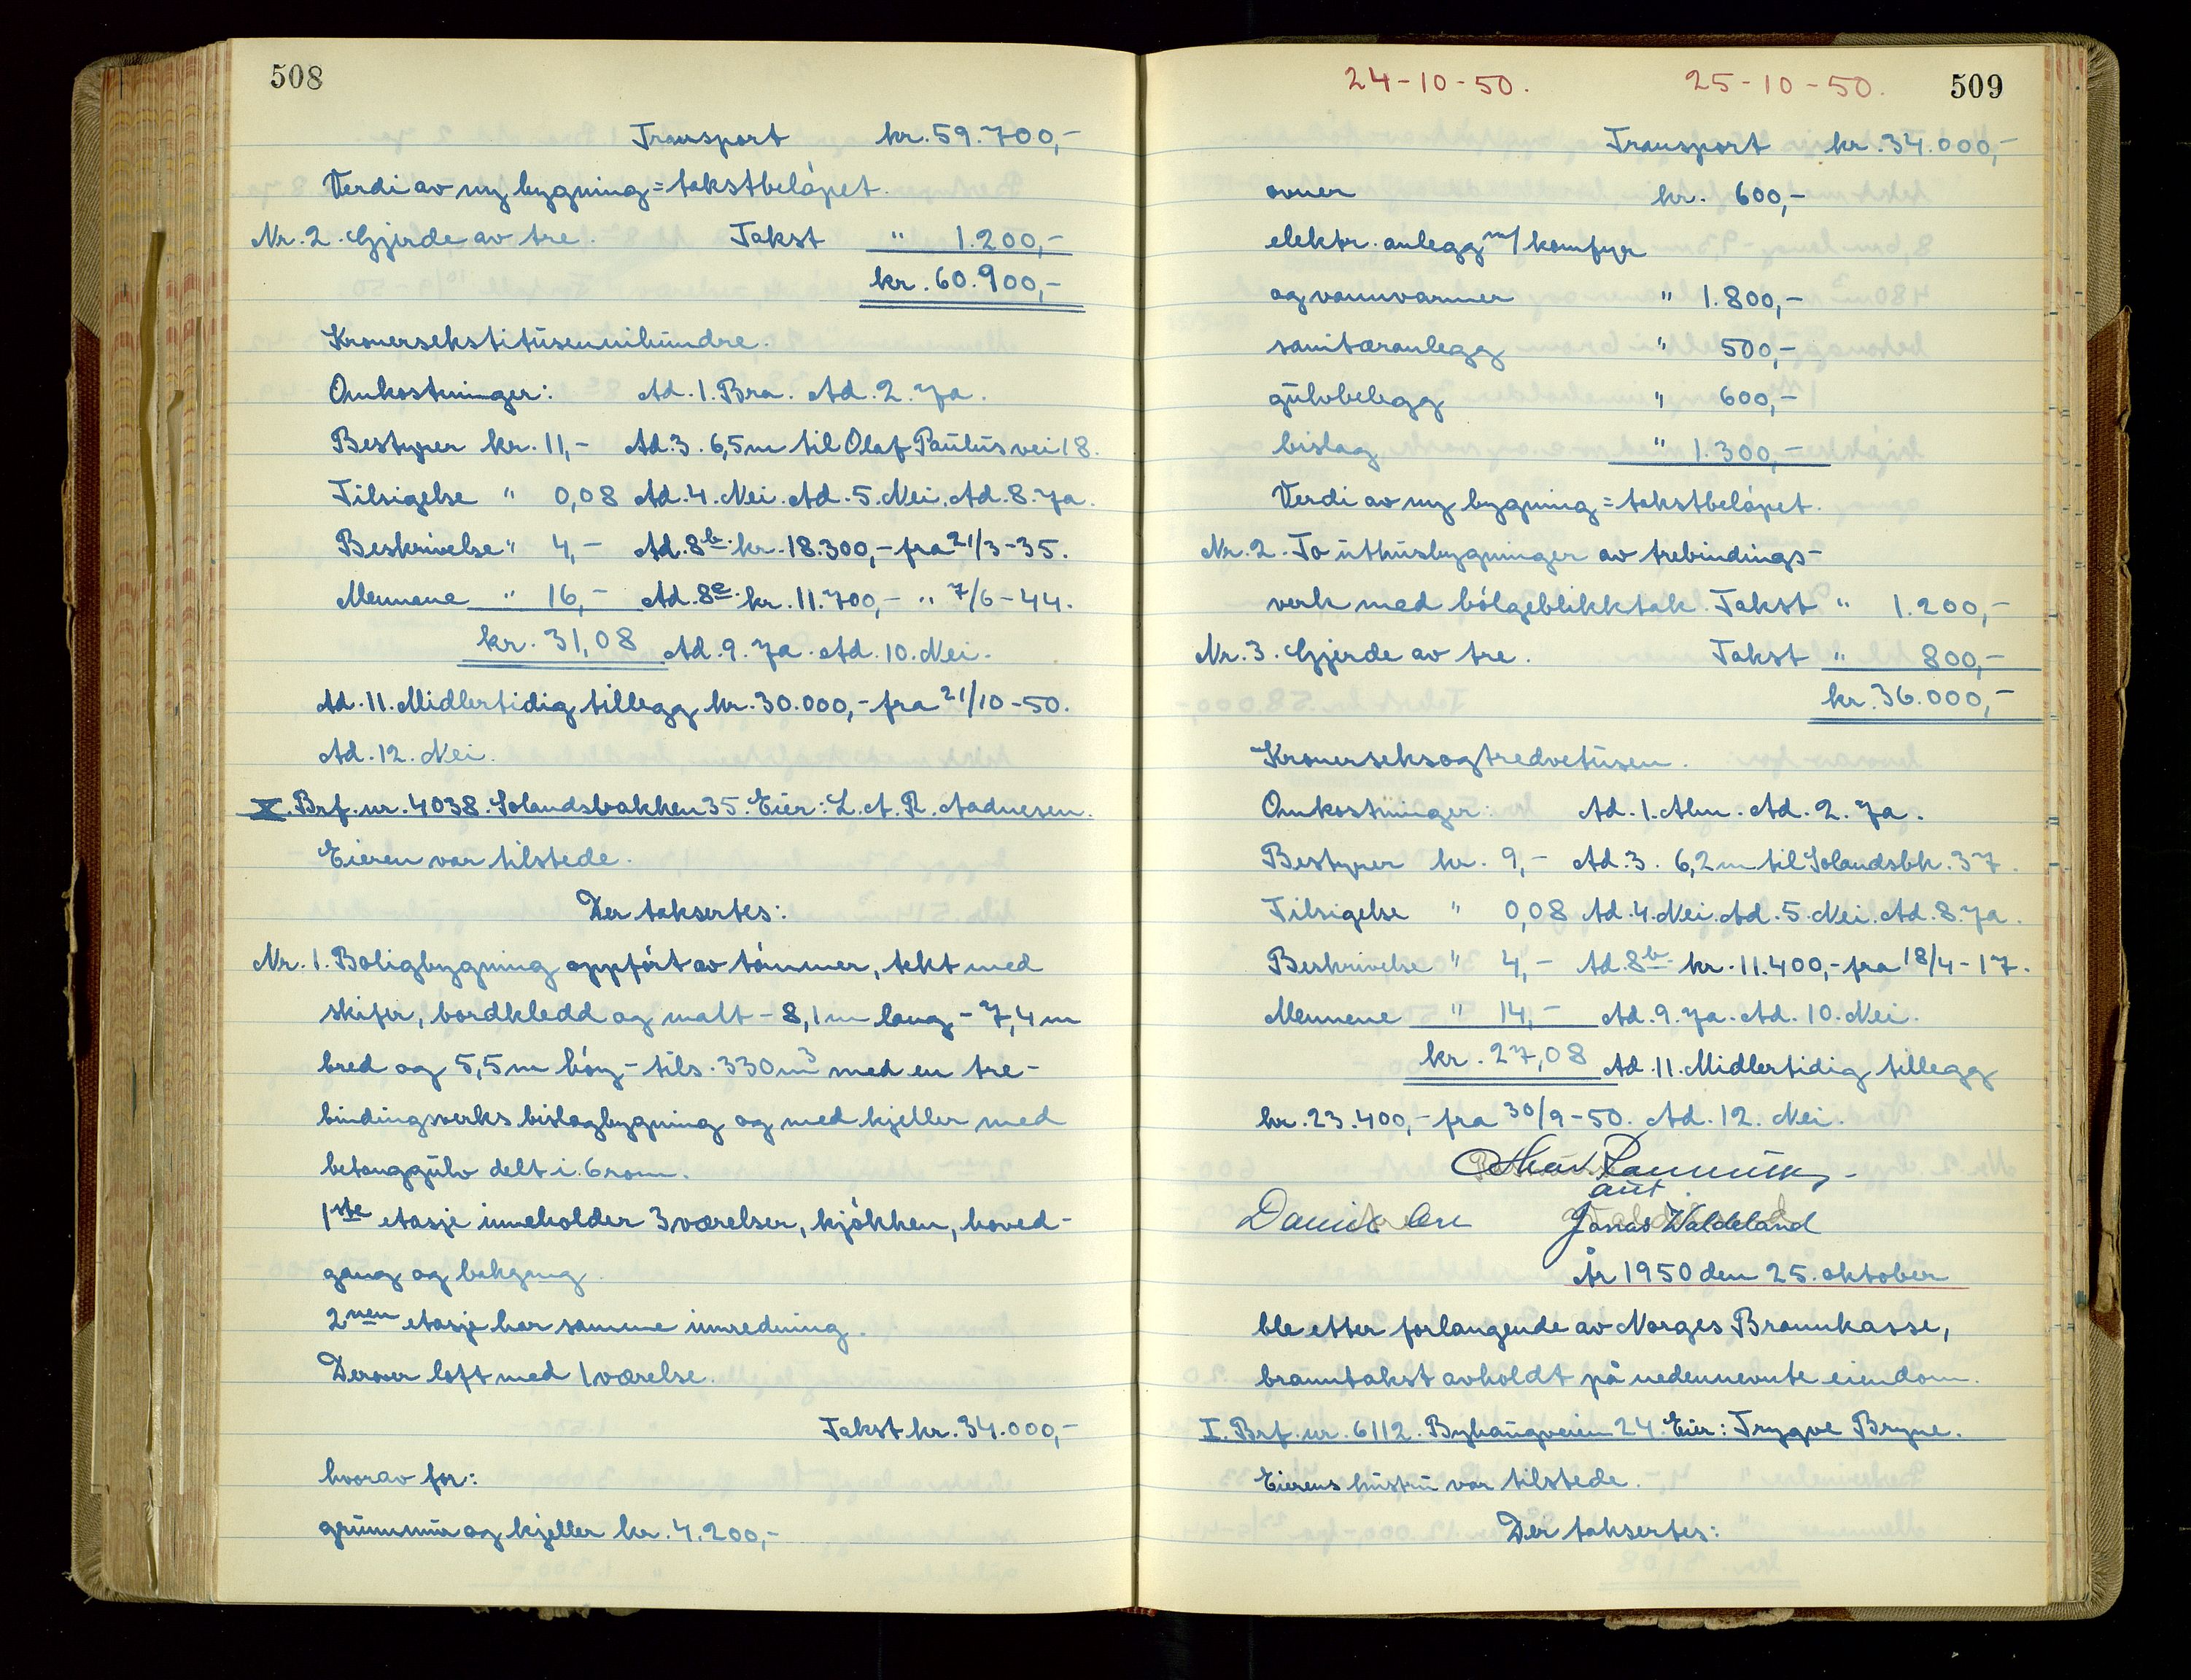 508
Transport kr. 59.700,-
Verdi av ny bygning = takstbeløpet.
Nr. 2. Gjerde av tre. Takst " 1.200,-
kr. 60.900,-
Kronersekstitusennihundre.
Omkostninger: Ad. 1. Bra. Ad. 2. Ja.
Bestyrer kr. 11,- Ad. 3. 6,5 m til Olaf Paulus vei 18.
Tilsigelse " 0,08 Ad. 4. Nei. Ad. 5. Nei. Ad. 8. Ja.
Beskrivelse " 4,- Ad. 8b. kr. 18.300,- fra 21/3-35.
Mennene " 16,- Ad. 8c. kr. 11.700,- " 7/6-44.
kr. 31,08 Ad. 9. Ja. Ad. 10. Nei.
Ad. 11. Midlertidig tillegg kr. 30.000,- fra 21/10-50.
Ad. 12. Nei.
X. Brf. nr. 4038. Solandsbakken 35. Eier: L. A. R. Aadnesen.
Eieren var tilstede.
Der taksertes:
Nr. 1. Boligbygning oppført av tømmer, tekt med
skifer, bordkledd og malt - 8,1 m lang - 7,4 m
bred og 5,5 m høy - tils. 330 m3 med en tre-
bindingsverks bislagbygning og med kjeller med
betonggulv delt i 6 rom.
1ste etasje inneholder 3 værelser, kjøkken, hoved-
gang og bakgang.
2nen etasje har samme innredning.
Derover loft med 1 værelse.
Takst kr. 34.000,-
hvorav for:
grunnmur og kjeller kr. 4.200,-
24-10-50. 25-10-50. 509
Transport kr. 34.000,-
ovner kr. 600,-
elektr. anlegg m/ komfyr
og vannvarmer " 1.800,-
sanitæranlegg " 500,-
gulvbelegg " 600,-
bislag " 1.300,-
Verdi av ny bygning = takstbeløpet.
Nr. 2. To uthusbygninger av trebindings-
verk med bølgeblikktak. Takst " 1.200,-
Nr. 3. Gjerde av tre. Takst " 800,-
kr. 36.000,-
Kronerseksogtredvetusen.
Omkostninger: Ad. 1. Alm. Ad. 2. Ja.
Bestyrer kr. 9,- Ad. 3. 6,2 m til Solandsbk. 37.
Tilsigelse " 0,08 Ad. 4. Nei. Ad. 5. Nei. Ad. 8. Ja.
Beskrivelse " 4,- Ad. 8b. kr. 11.400,- fra 18/4-17.
Mennene " 14,- Ad. 9. Ja. Ad. 10. Nei.
kr. 27,08 Ad. 11. Midlertidig tillegg
kr. 23.400,- fra 30/9-50. Ad. 12. Nei.
aut
Jonas Waldeland
År 1950 den 25. oktober
ble etter forlangende av Norges Brannkasse,
branntakst avholdt på nedennevnte eiendom.
I. Brf. nr. 6112. Byhaugveien 24. Eier: Trygve Bryne.
Eierens hustru var tilstede.
Der taksertes: